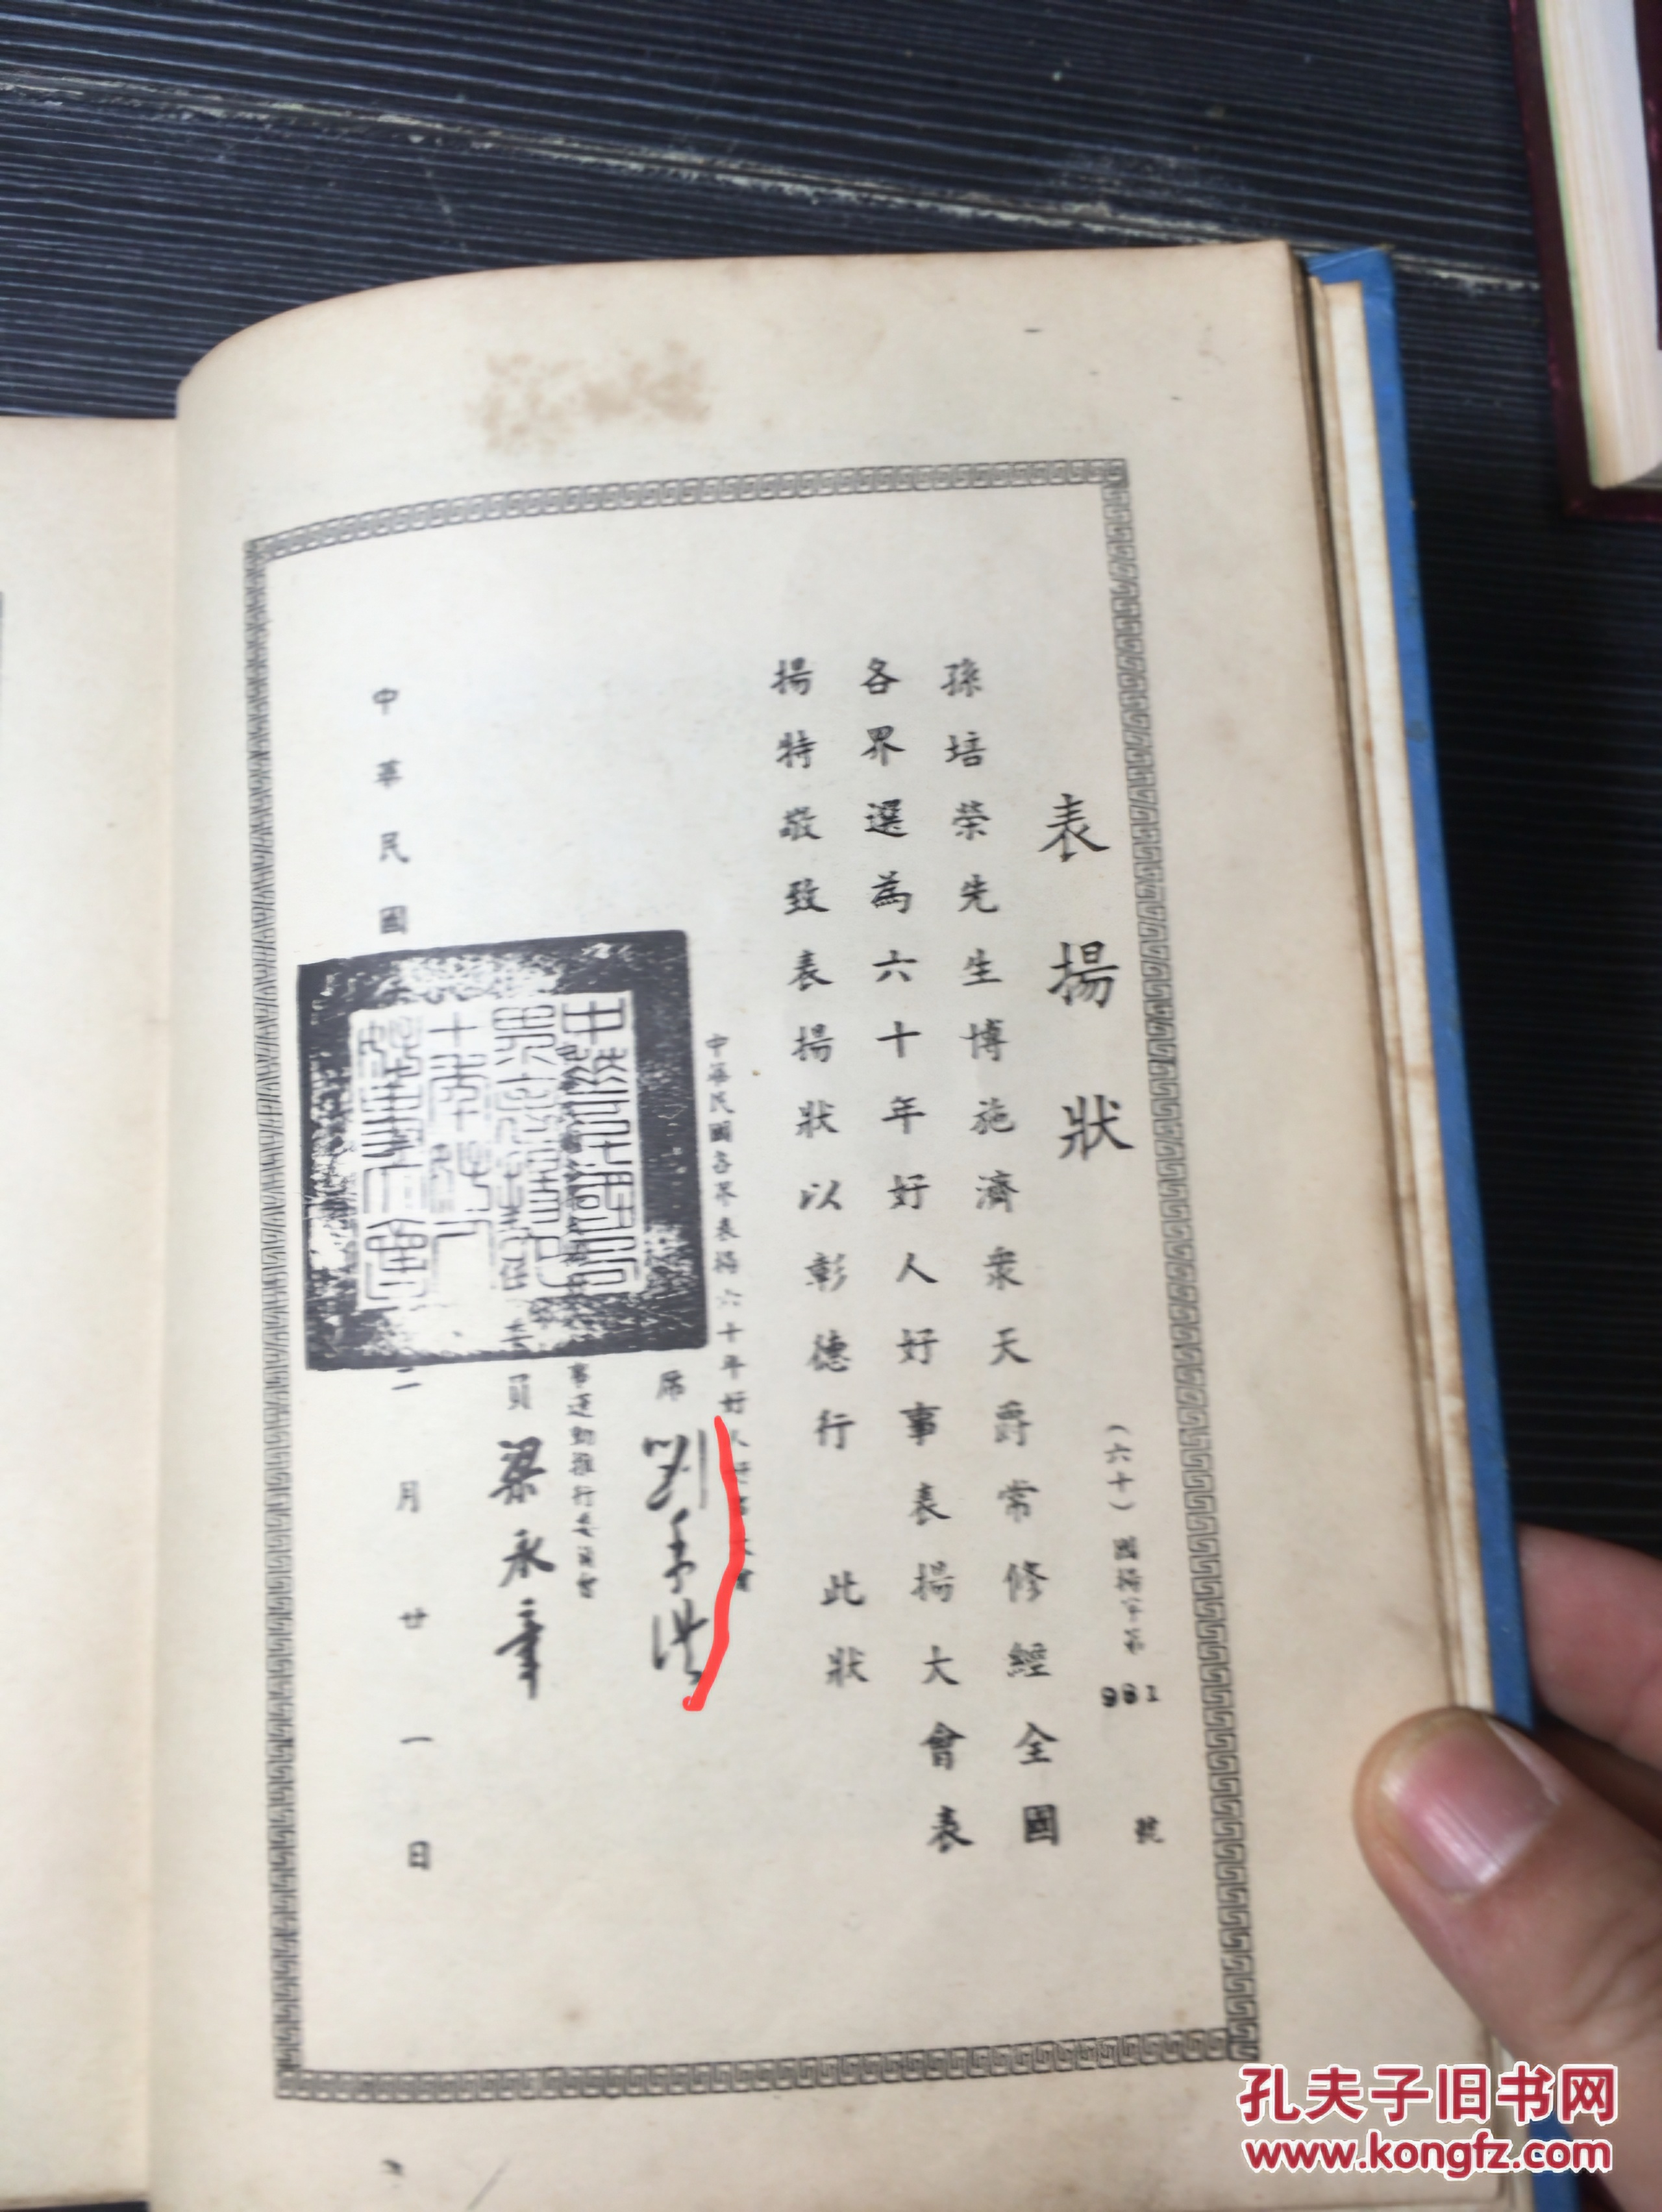 表揚狀
(六十)國揚字第981號
孫培榮先生博施濟衆天爵常修經全國
各界選為六十年好人好事表揚大會表
揚特敬致表揚狀以彰德行 此狀
中華民國各界表揚六十年好人好事大會
席
事運動推行委員會
委員 梁永章
中華民國
二月廿一日
孔夫子旧书网
www.kongfz.com